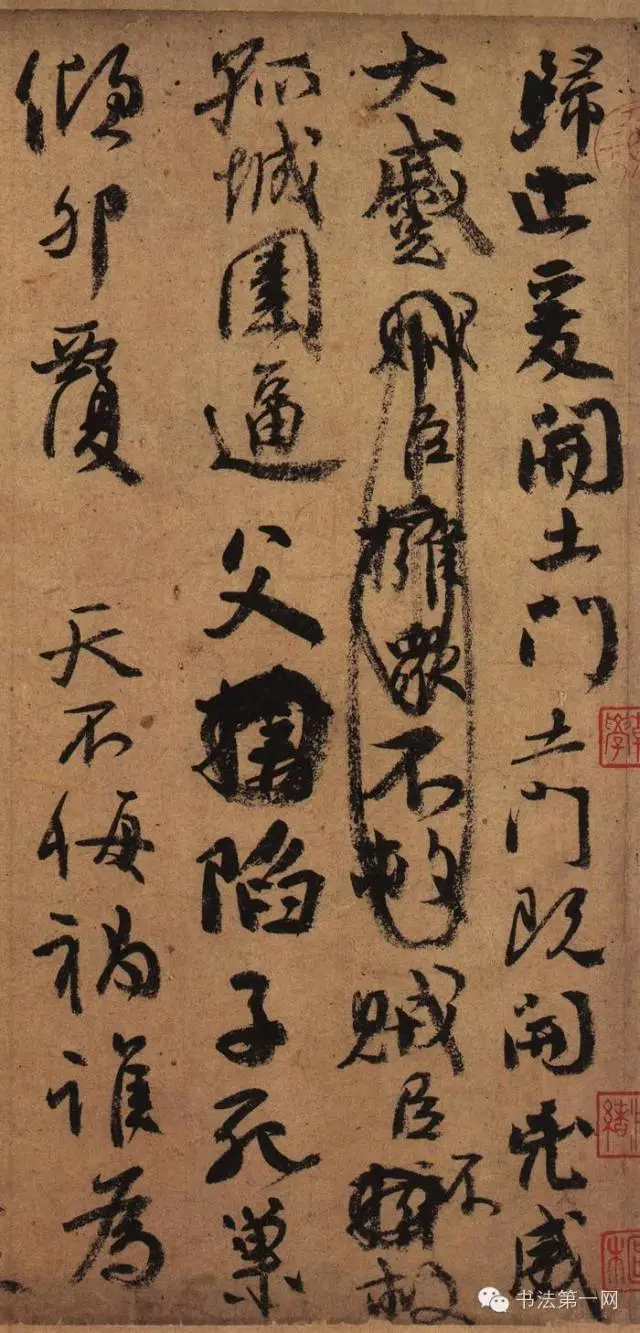 歸止爰開土門土門既開凶威
大蹙賊臣擁衆不救賊臣不救
孤城圍逼父陷子死巢
傾卵覆 天不悔禍誰為
书法第一网